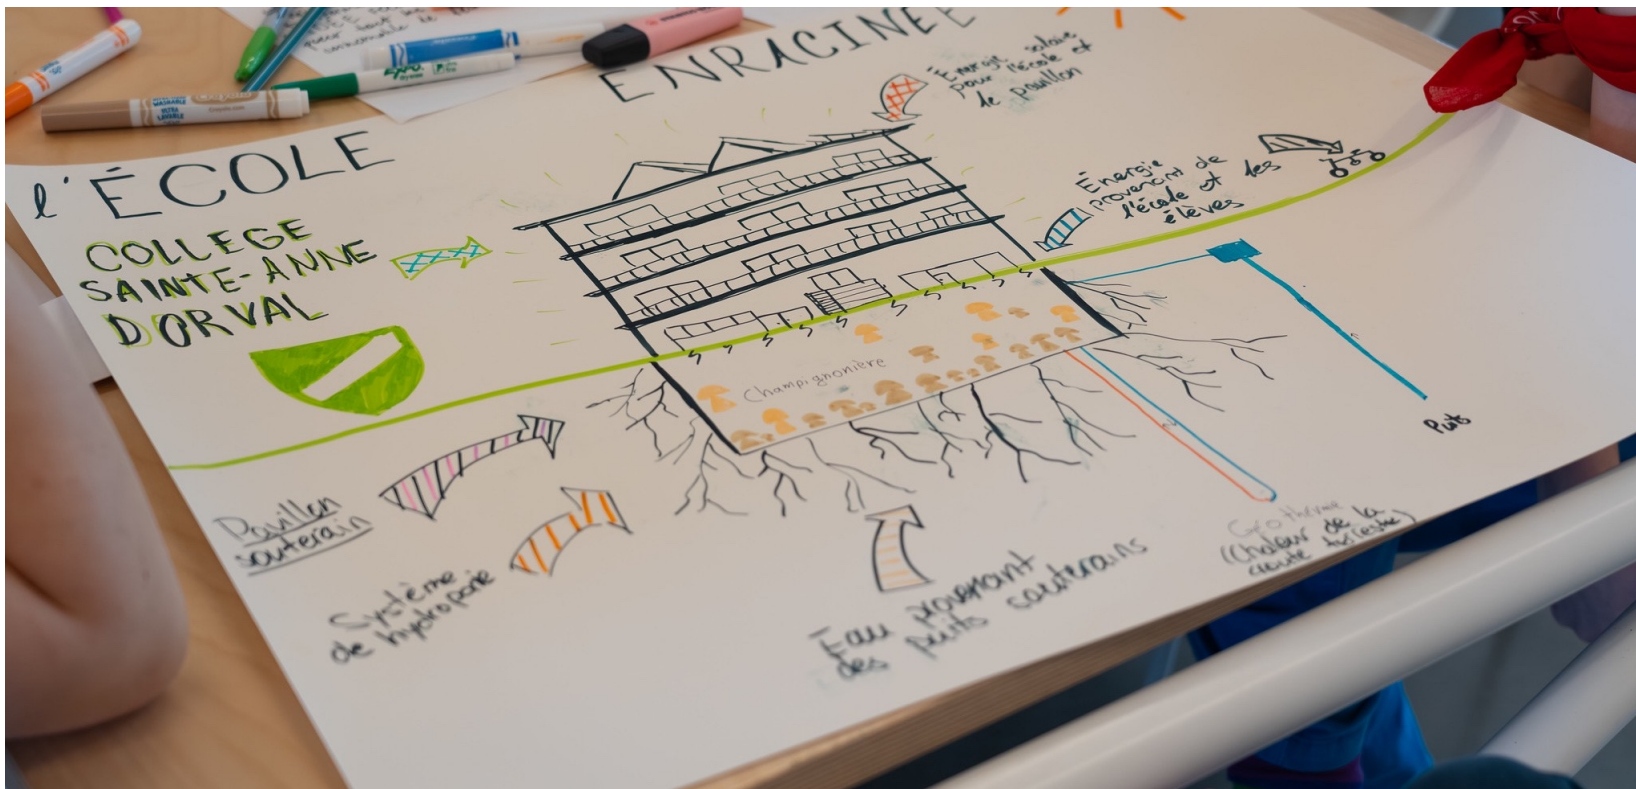 l'ÉCOLE ENRACINÉE
COLLEGE
SAINTE-ANNE
DORVAL
Énergie solaire
pour l'école et
le pavillon
Énergie
provenant de
l'école et des
élèves
Champignonière
Pavillon
souterain
Système
de hydroponie
Eau provenant
des puits souterains
Puits
Géothermie
(Chaleur de la
croute terrestre)